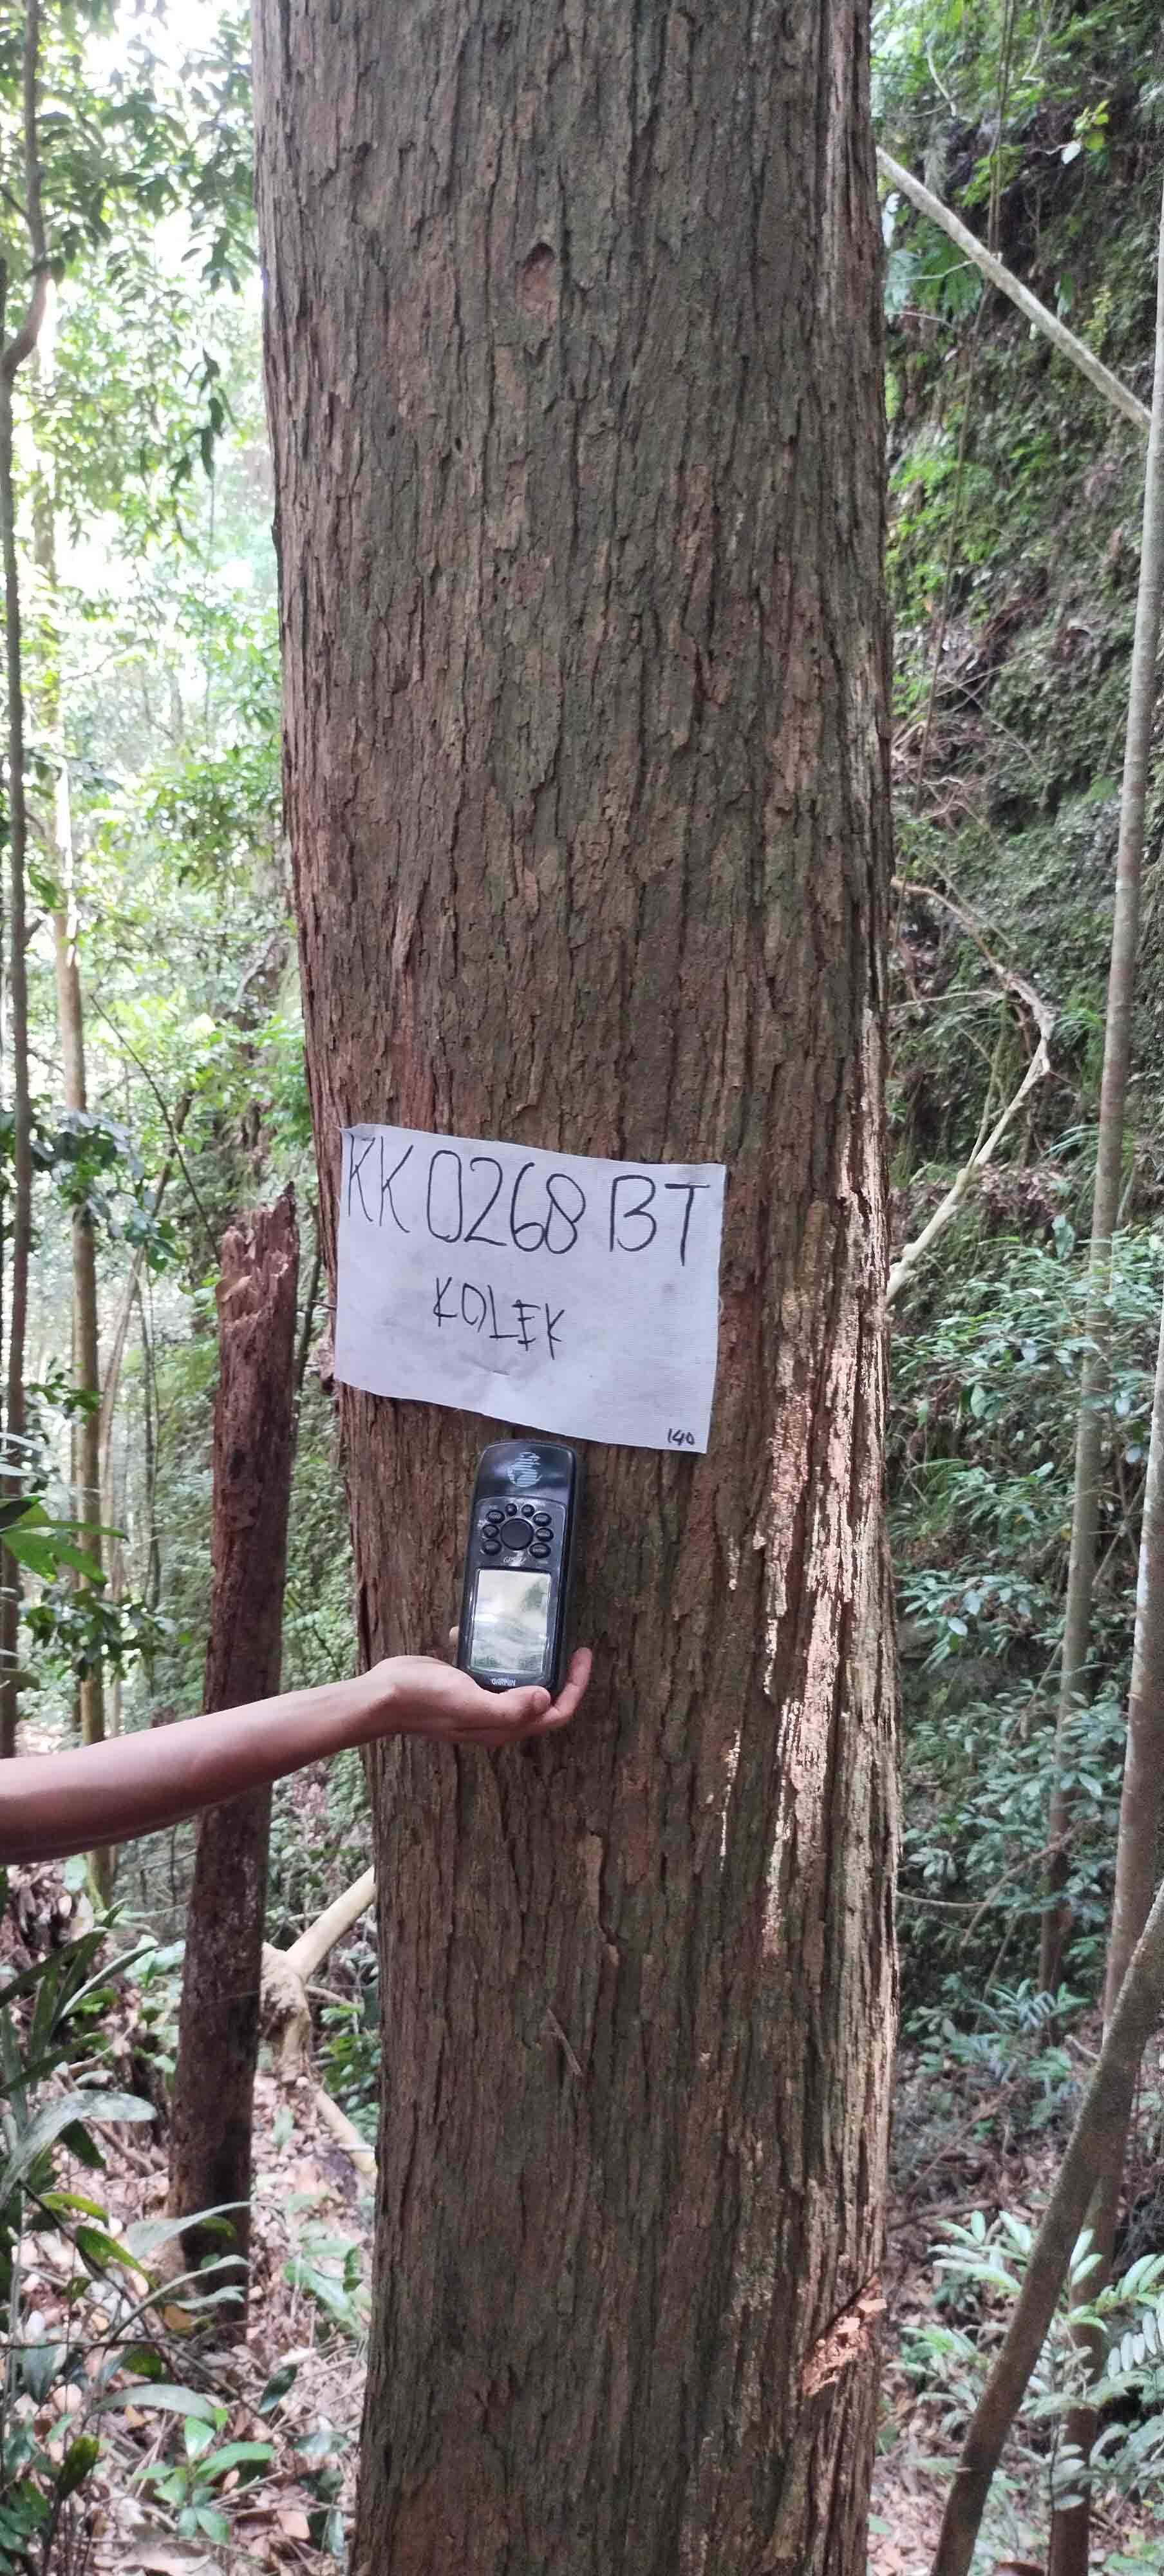 KK 0268 BT
KOLEK
140
GARMIN